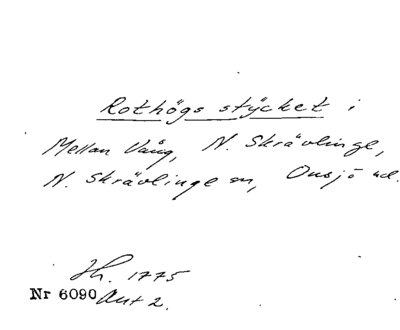 Rothögs stycket i
Mellan Vång, N. Skrävlinge,
N. Skrävlinge sn, Onsjö hd.
Jh. 1775
Nr 6090 Akt 2.